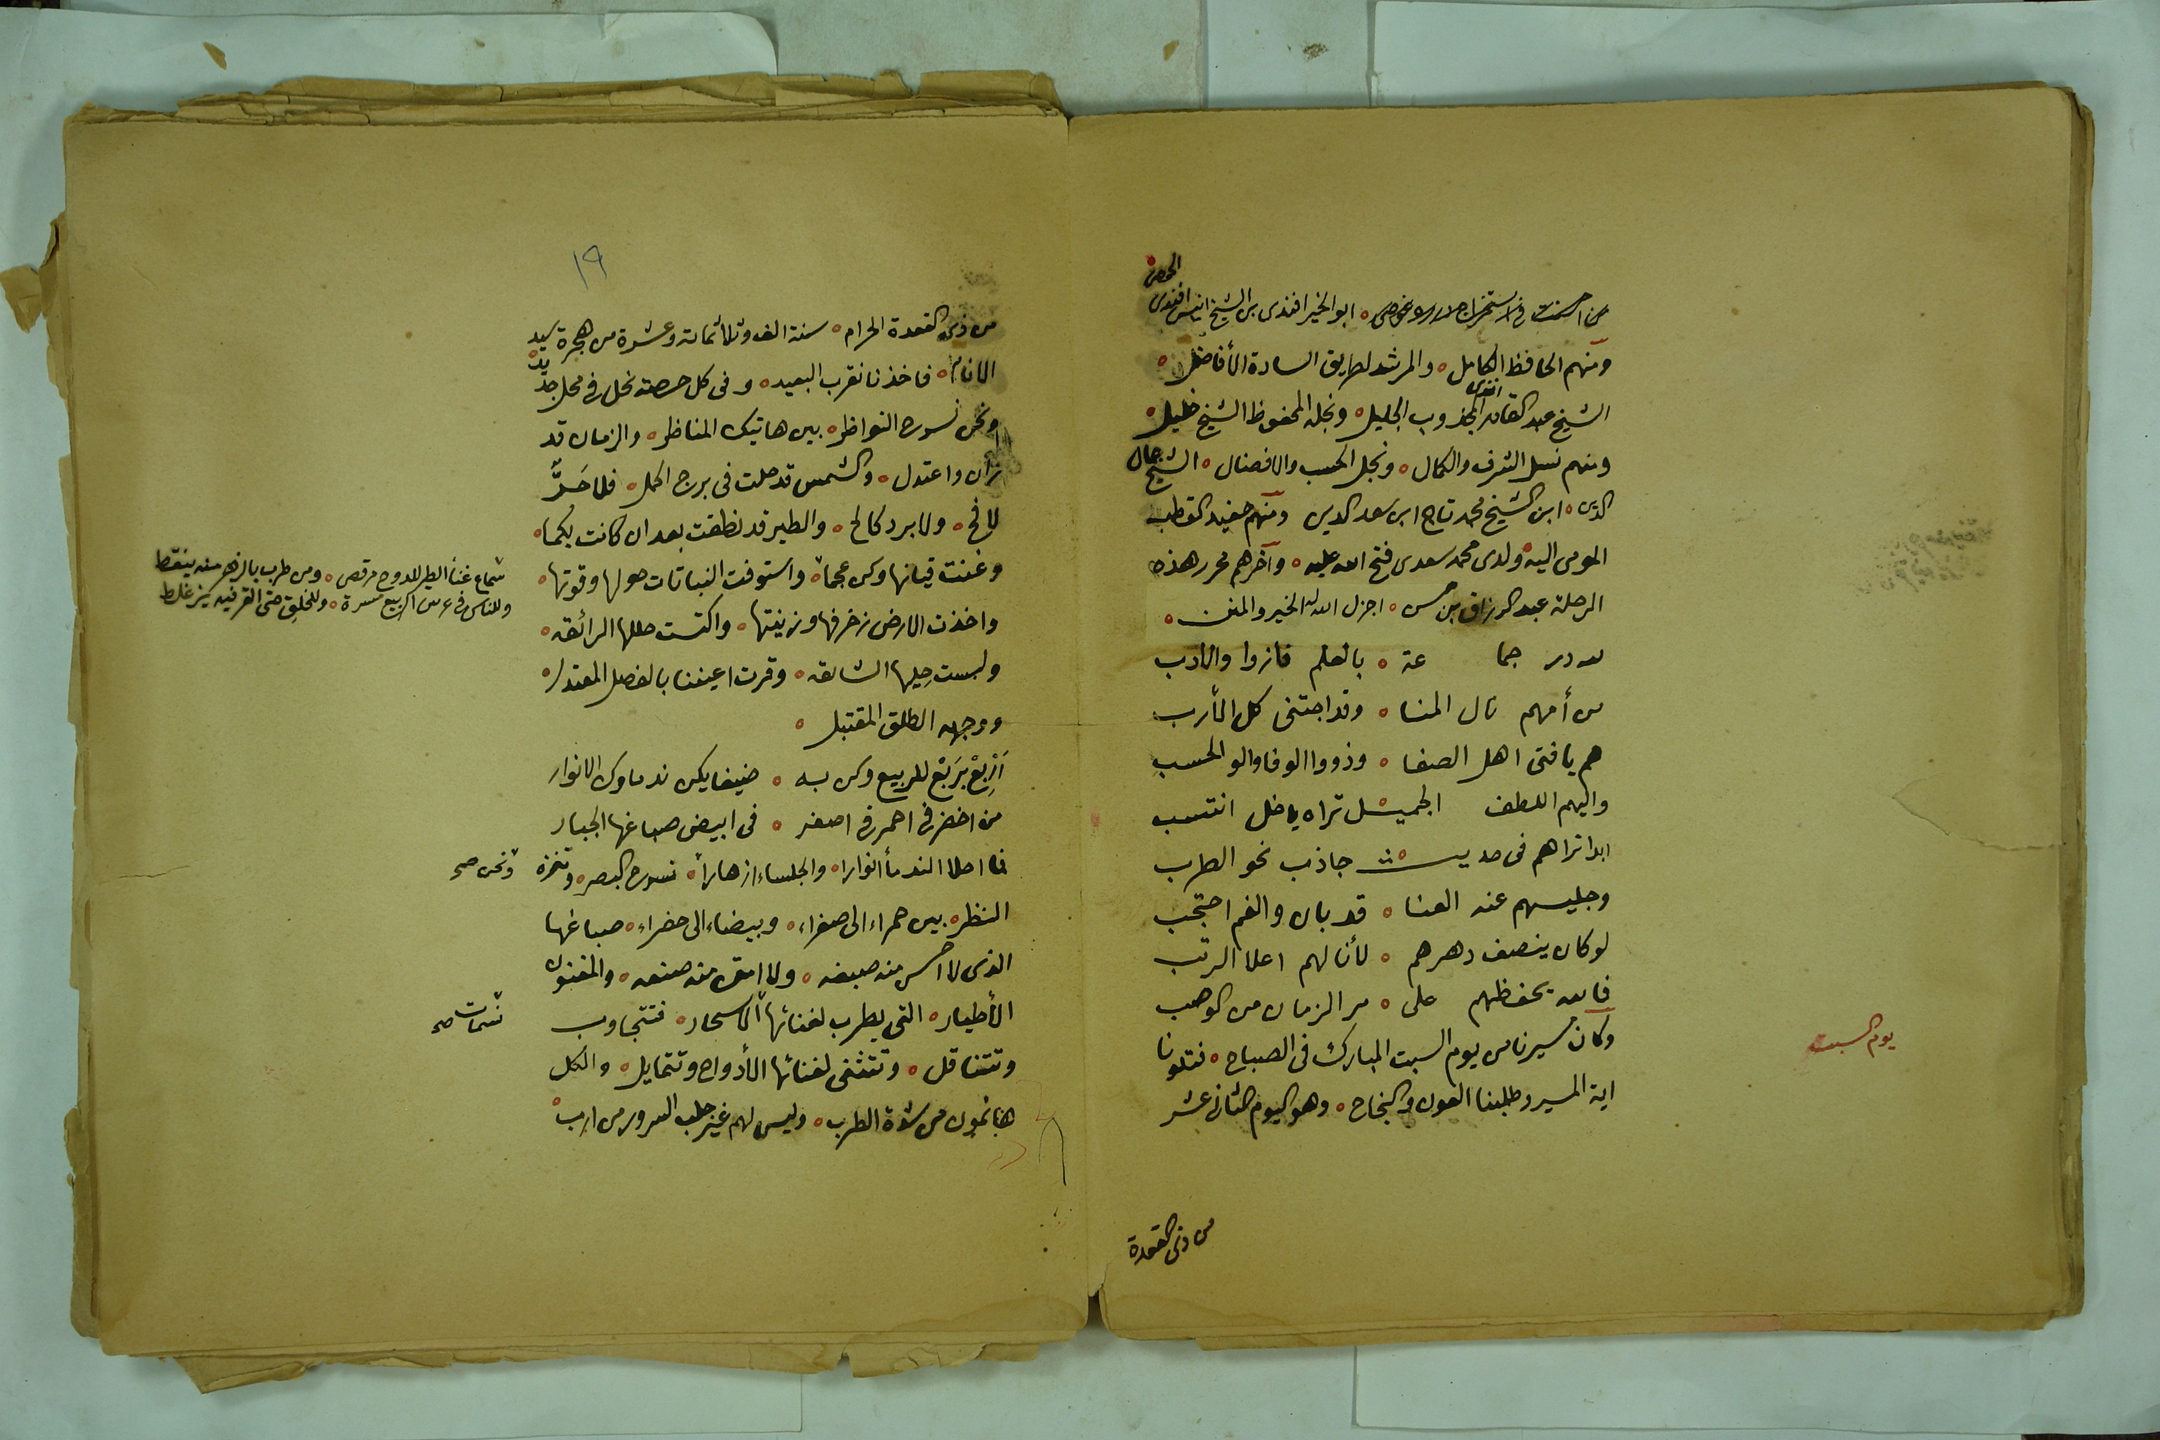 الحمصى
ابو الخير افندى بن الشيخ انيس افندى
ومنهم الحافظ الكامل ٥ والمرشد لطريق السادة الأفاضل ٥
الشيخ عبد القادر افندى المجذوب الجليل ٥ ونجله المحفوظ الشيخ خليل ٥
ومنهم نسل الشرف والكمال ٥ ونجل الحسب والافضال ٥ الشيخ جمال
الدين ٥ ابن الشيخ محمد تاج ابن سعد الدين ومنهم حفيد القطب
المومى اليه ٥ ولدى محمد سعدى فتح الله عليه ٥ وآخرهم محرر هذه
الرحلة عبد الرزاق بن حسن ٥ اجزل الله له الخير والمنن ٥
لله در جما عة ٥ بالعلم فازوا والادب
من أمهم نال المنا ٥ وقد اجتنى كل الأرب
هم يا فتى اهل الصفا ٥ وذووا الوفا والو الحسب
واليهم اللطف الجميـ ـل تراه يا خل انتسب
ابدا تراهم فى حديـ ـث جاذب نحو الطرب
وجليسهم عنه العنا ٥ قد بان والغم احتجب
لو كان ينصف دهرهم ٥ لأنالهم اعلا الرتب
فالله يحفظهم على ٥ مر الزمان من الوصب
وكان مسيرنا من يوم السبت المبارك فى الصباح ٥ فتلونا
اية المسير وطلبنا العون والنجاح ٥ وهو اليوم الثانى عشر
يوم السبت
من ذى القعدة
١٩
من ذى القعدة الحرام ٥ سنة الف وثلاثمائة وعشرة من هجرة سيد
الانام ٥ فاخذنا نقرب البعيد ٥ وفى كل حصة نحل فى محل جديد
ونحن نسرح النواظر ٥ بين هاتيك المناظر ٥ والزمان قد
زان واعتدل ٥ والشمس قد حلت فى برج الحمل ٥ فلا حَرٌّ
لافح ٥ ولا برد كالح ٥ والطير قد نطقت بعد ان كانت بكما ٥
وغنت قيانها وكن عجما ٥ واستوفت النباتات حولها وقوتها ٥
واخذت الارض زخرفها وزينتها ٥ واكتست حللها الرائقه ٥
ولبست حليها الشائقه ٥ وقرت اعيننا بالفصل المعتدل ٥
ووجهه الطلق المقتبل ٥
اَرْبِعْ بِرَبْعٍ للربيع وكن به ٥ ضيفا يكن ندماوك الانوار
من اخضر فى احمر فى اصفر ٥ فى ابيض صباغها الجبار
فما احلا الندمأ انوارا ٥ والجلساء ازهارا ٥ نسرح البصر ٥
النظر ٥ بين حمراء الى صفراء ٥ وبيضاء الى خضراء ٥ صباغها
الذى لا احسن منه صبغه ٥ ولا اتقن منه صنعه ٥ والمغنون
الأطيار ٥ التى يطرب لغنائها الاسحار ٥ فتتجاوب
وتتناقل ٥ وتتثنى لغنائها الأدواح وتتمايل ٥ والكل
هائمون من نشوة الطرب ٥ وليس لهم غير جلب السرور من ارب ٥
سماع غنأ الطير للدوح مرقص ٥ ومن طرب بالزهر منه ينقط
وللناس فى عرس الربيع مسرة ٥ وللخلق حتى القر فيه يزغلط
ونحن صح
نسمات صح